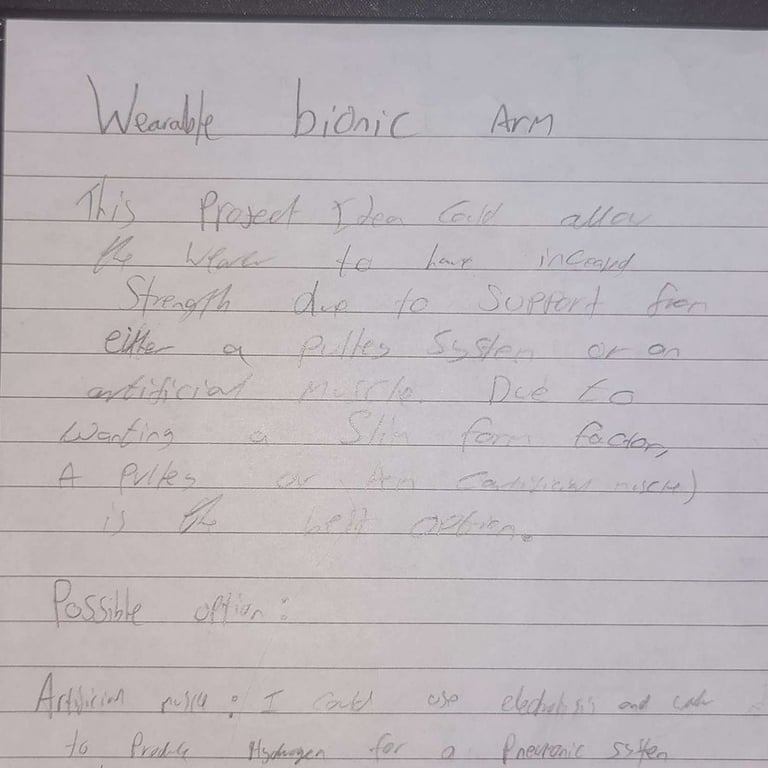 Wearable bionic Arm
This Project Idea Could allow
the wearer to have increased
Strength due to support from
either a pulley system or an
artificial muscle. Due to
wanting a Slim form factor,
A pulley or Am (artificial muscle)
is the best option.
Possible option:
Artificial muscle: I could use electrolisis and water
to Produce Hydrogen for a Pneumonic system